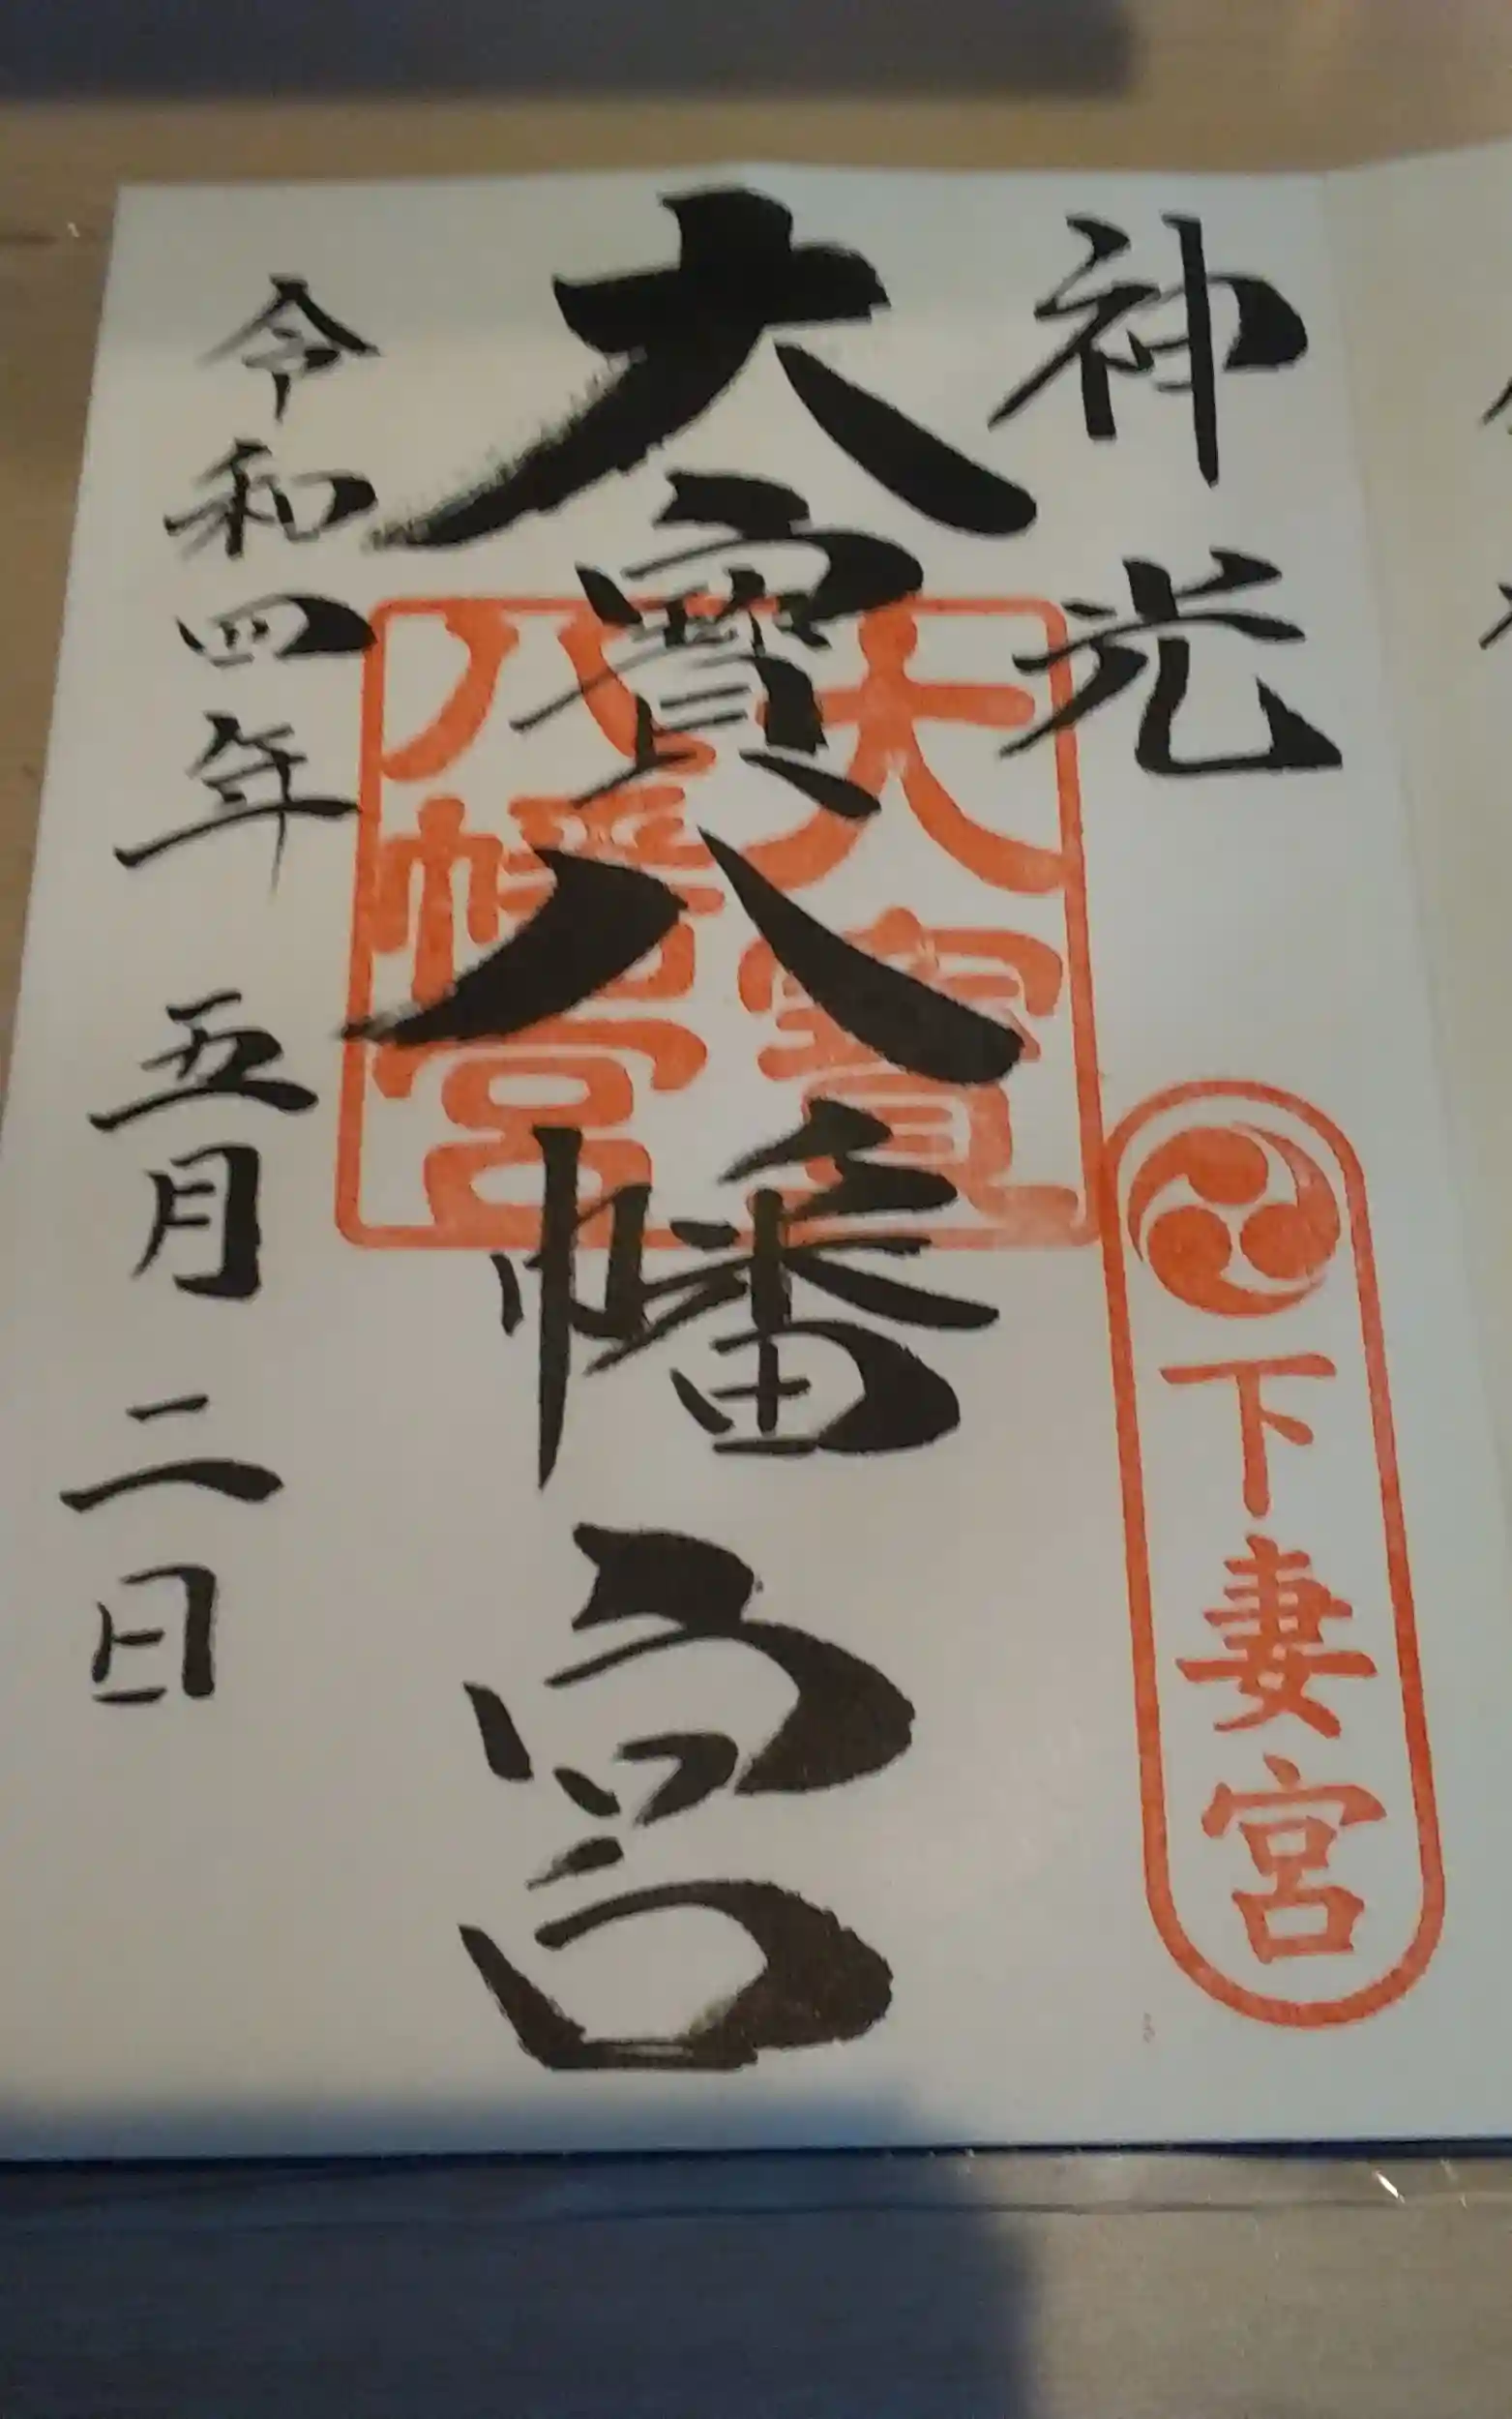 神光
下妻宮
大寳八幡宮
大寳
八幡宮
令和四年 五月二日